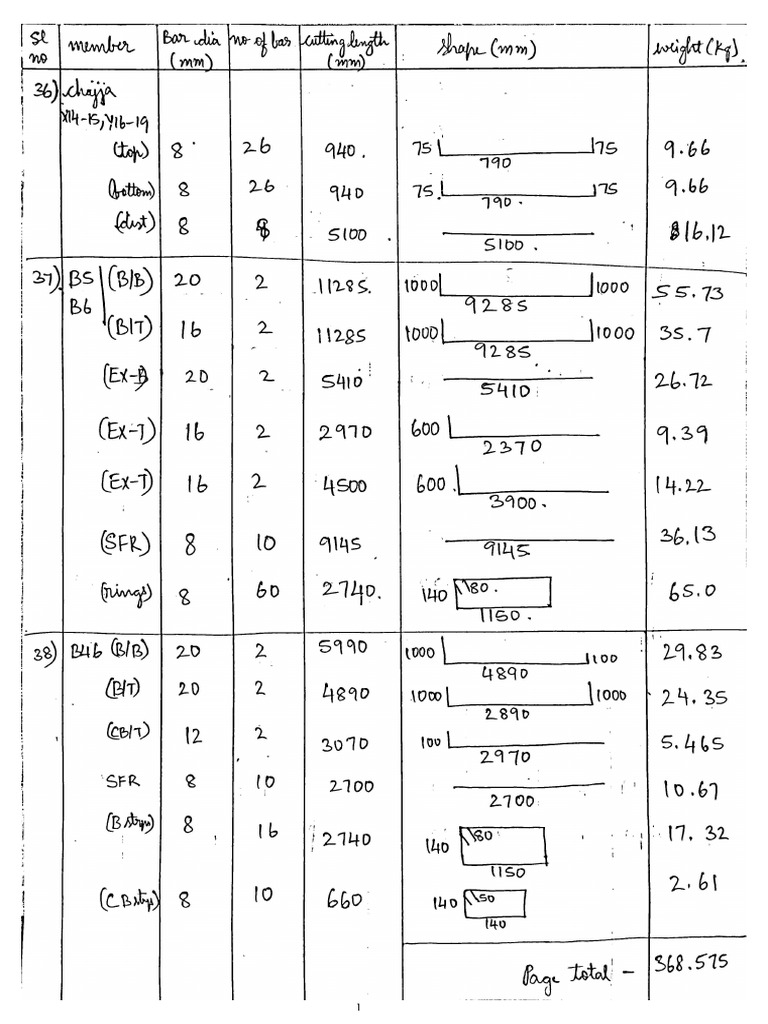 Sl no member Bar dia (mm) no of bar cutting length (mm) shape (mm) weight (Kg).
36) chajja
X14-15, Y16-19
(top) 8 26 940. 75 790 75 9.66
(bottom) 8 26 940 75. 790. 75 9.66
(dist) 8 8 5100 5100. 16.12
37) B5 (B/B) 20 2 11285. 1000 9285 1000 55.73
B6
(B/T) 16 2 11285 1000 9285 1000 35.7
(Ex-B) 20 2 5410 5410 26.72
(Ex-T) 16 2 2970 600 2370 9.39
(Ex-T) 16 2 4500 600 3900. 14.22
(SFR) 8 10 9145 9145 36.13
(rings) 8 60 2740. 140 80. 1150. 65.0
38) B46 (B/B) 20 2 5990 1000 4890 100 29.83
(B/T) 20 2 4890 1000 2890 1000 24.35
(CB/T) 12 2 3070 100 2970 5.465
SFR 8 10 2700 2700 10.67
(B strps) 8 16 2740 140 80 1150 17.32
(CB strps) 8 10 660 140 50 140 2.61
Page total - 368.575
1